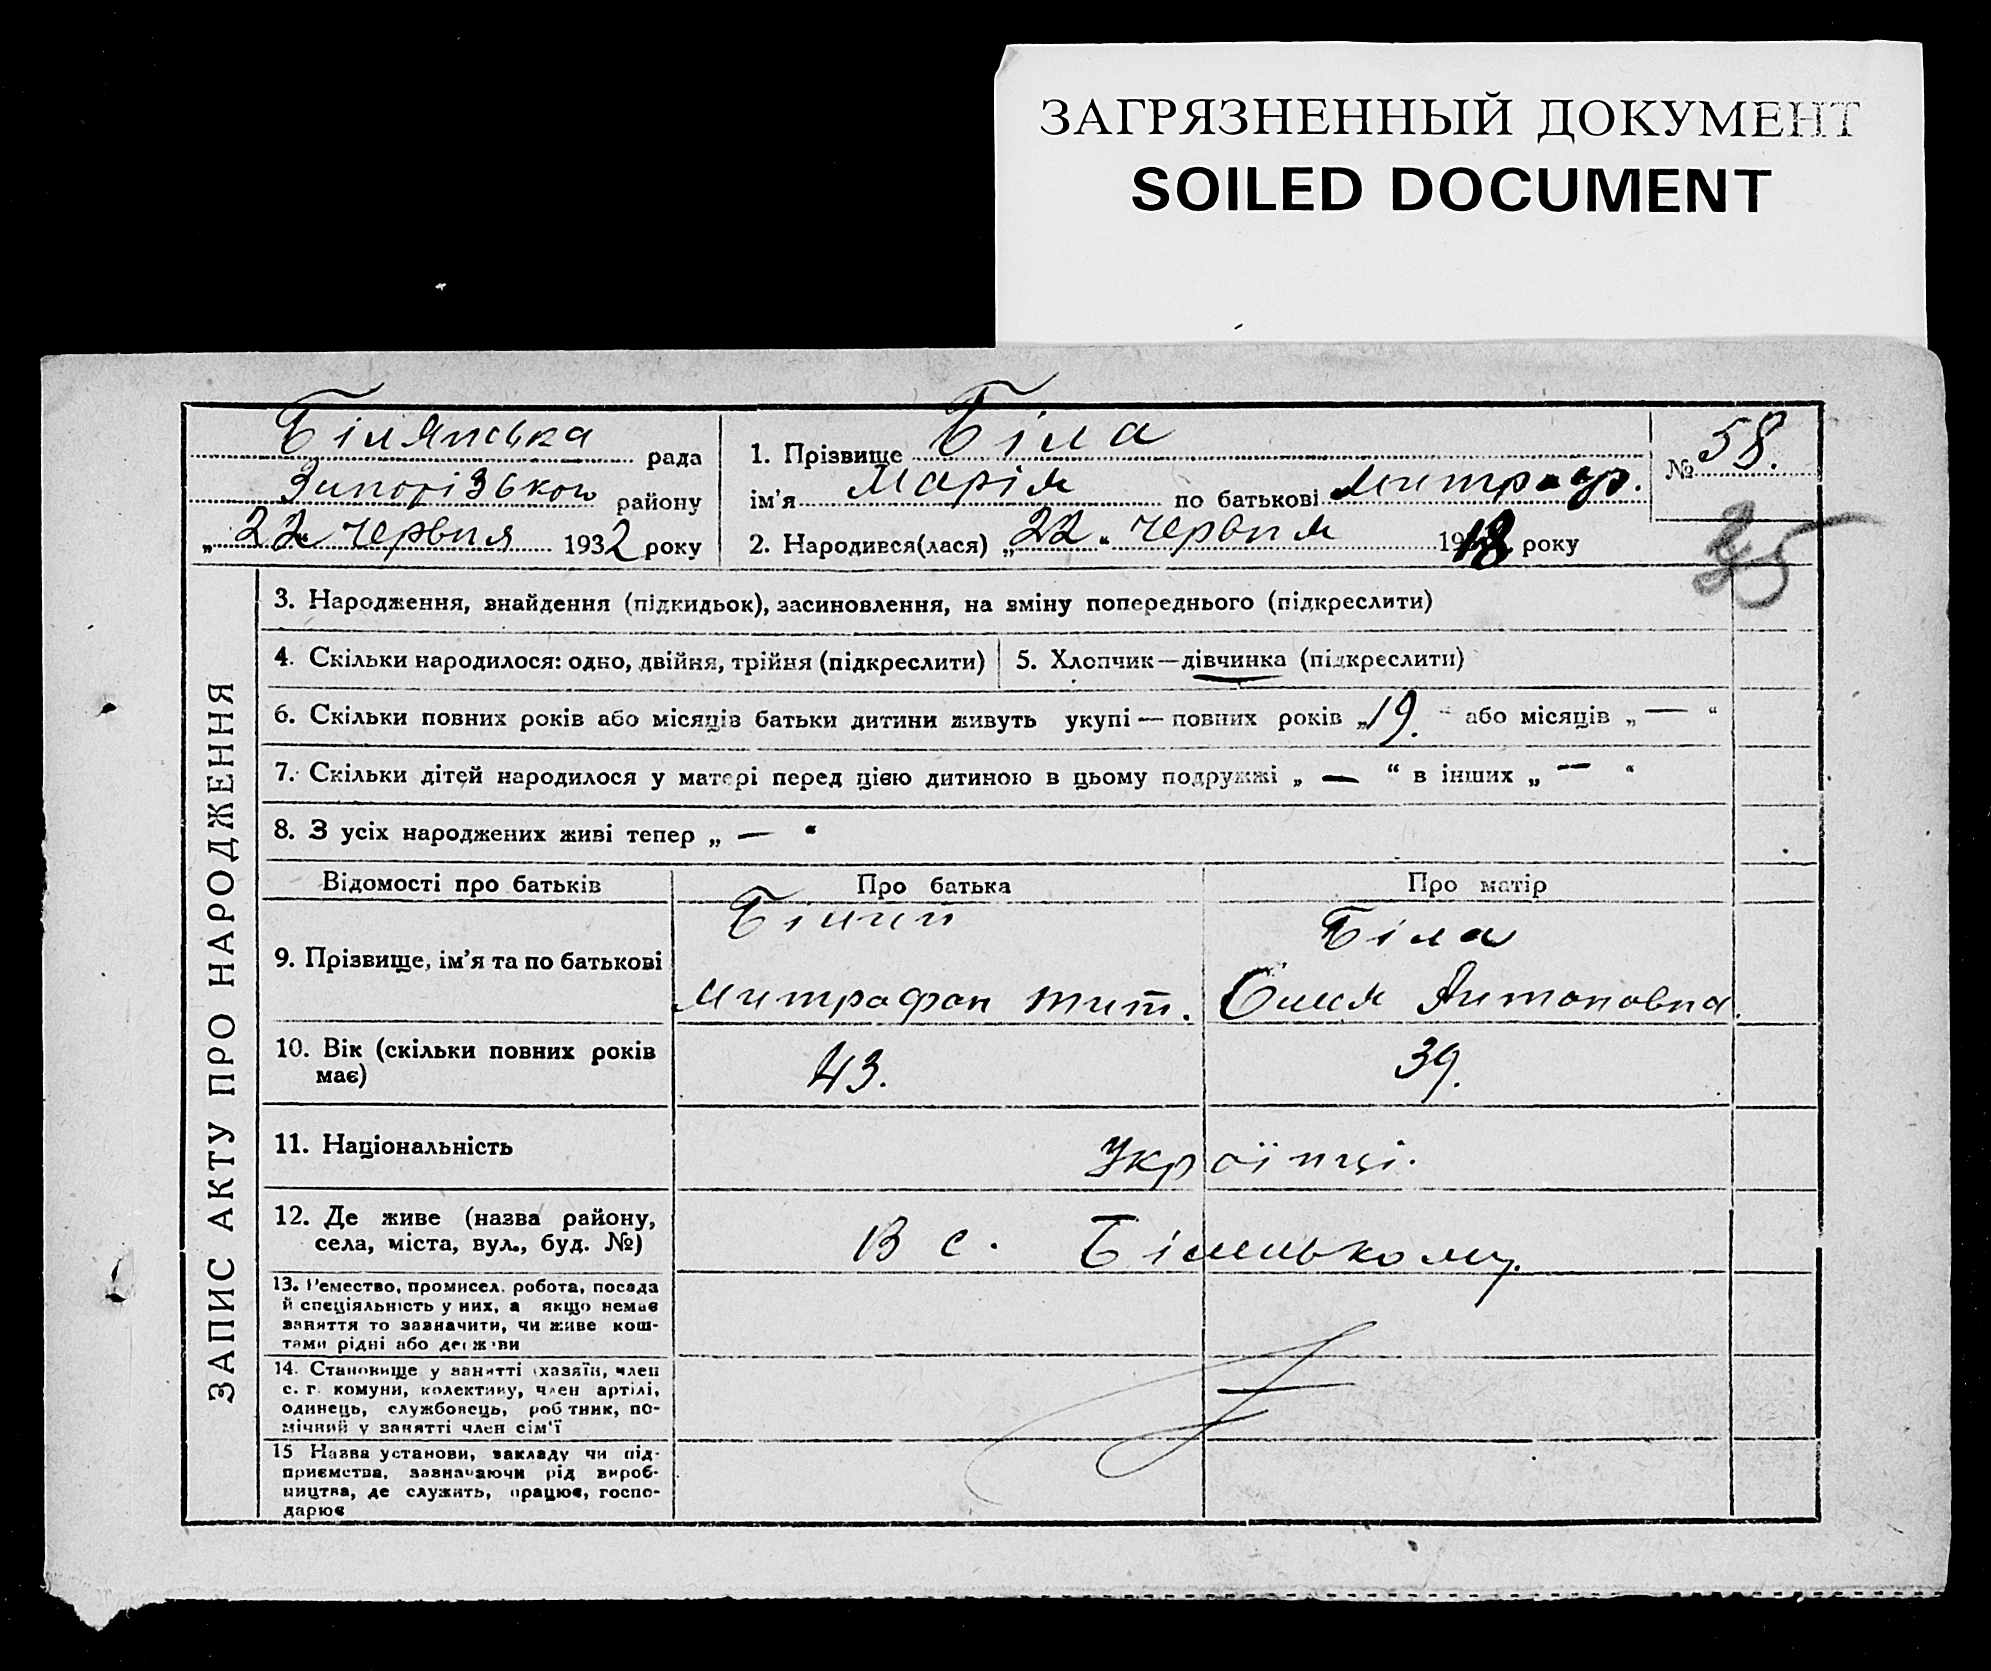 ЗАГРЯЗНЕННЫЙ ДОКУМЕНТ
SOILED DOCUMENT
Білянська рада
Запорізького району
„22“ червня 1932 року
1. Прізвище Біла
ім'я Марія по батькові Митроф.
2. Народився(лася) „22“ червня 1918 року
№ 58.
ЗАПИС АКТУ ПРО НАРОДЖЕННЯ
3. Народження, знайдення (підкидьок), засиновлення, на зміну попереднього (підкреслити)
4. Скільки народилося: одно, двійня, трійня (підкреслити)
5. Хлопчик—дівчинка (підкреслити)
6. Скільки повних років або місяців батьки дитини живуть укупі — повних років „19.“ або місяців „—“
7. Скільки дітей народилося у матері перед цією дитиною в цьому подружжі „—“ в інших „—“
8. З усіх народжених живі тепер „—“
Відомості про батьків Про батька Про матір
9. Прізвище, ім'я та по батькові
Білий
Митрафан Тит.
Біла
Олия Антоновна.
10. Вік (скільки повних років
має)
43.
39.
11. Національність
Українці.
12. Де живе (назва району,
села, міста, вул., буд. №)
В с. Біленькому.
13. Ремество, промисел, робота, посада
й спеціяльність у них, а якщо немає
заняття то зазначити, чи живе кош-
тами рідні або держави
14. Становище у занятті (хазяїн, член
с. г. комуни, колективу, член артілі,
одинець, службовець, робітник, по-
мічний у занятті член сім'ї
15 Назва установи, закладу чи під-
приємства, зазначаючи рід вироб-
ництва, де служить, працює, госпо-
дарює